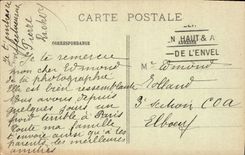 CARTE POSTALE
CORRESPONDANCE
N HAUT & A
DE L'ENVEL
Je te remercie
mon cher Edmond
de la photographie
Elle est bien ressemblante
Nous avons depuis
quelques jours un
froid terrible à Paris
Toute ma famille
t'envoie ainsi qu'à tes
parents les meilleures
amitiés
Mr Edmond
Rolland
3e Section COA
Elbeuf